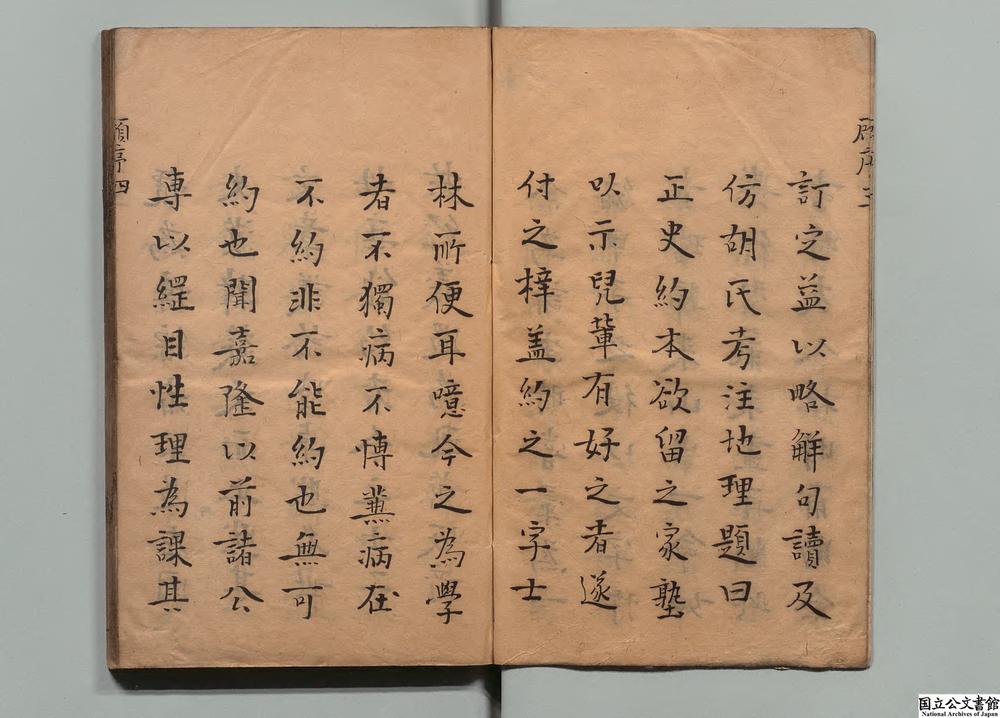 顧序三
訂定益以略解句讀及
仿胡氏考注地理題曰
正史約本欲留之家塾
以示兒輩有好之者遂
付之梓盖約之一字士
林所便耳噫今之為學
者不獨病不慱兼病在
不約非不能約也無可
約也聞嘉隆以前諸公
專以經目性理為課其
顧序四
国立公文書館
National Archives of Japan